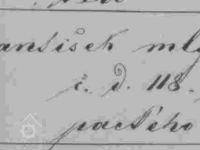 antišek ml
č. d. 118.
pactého